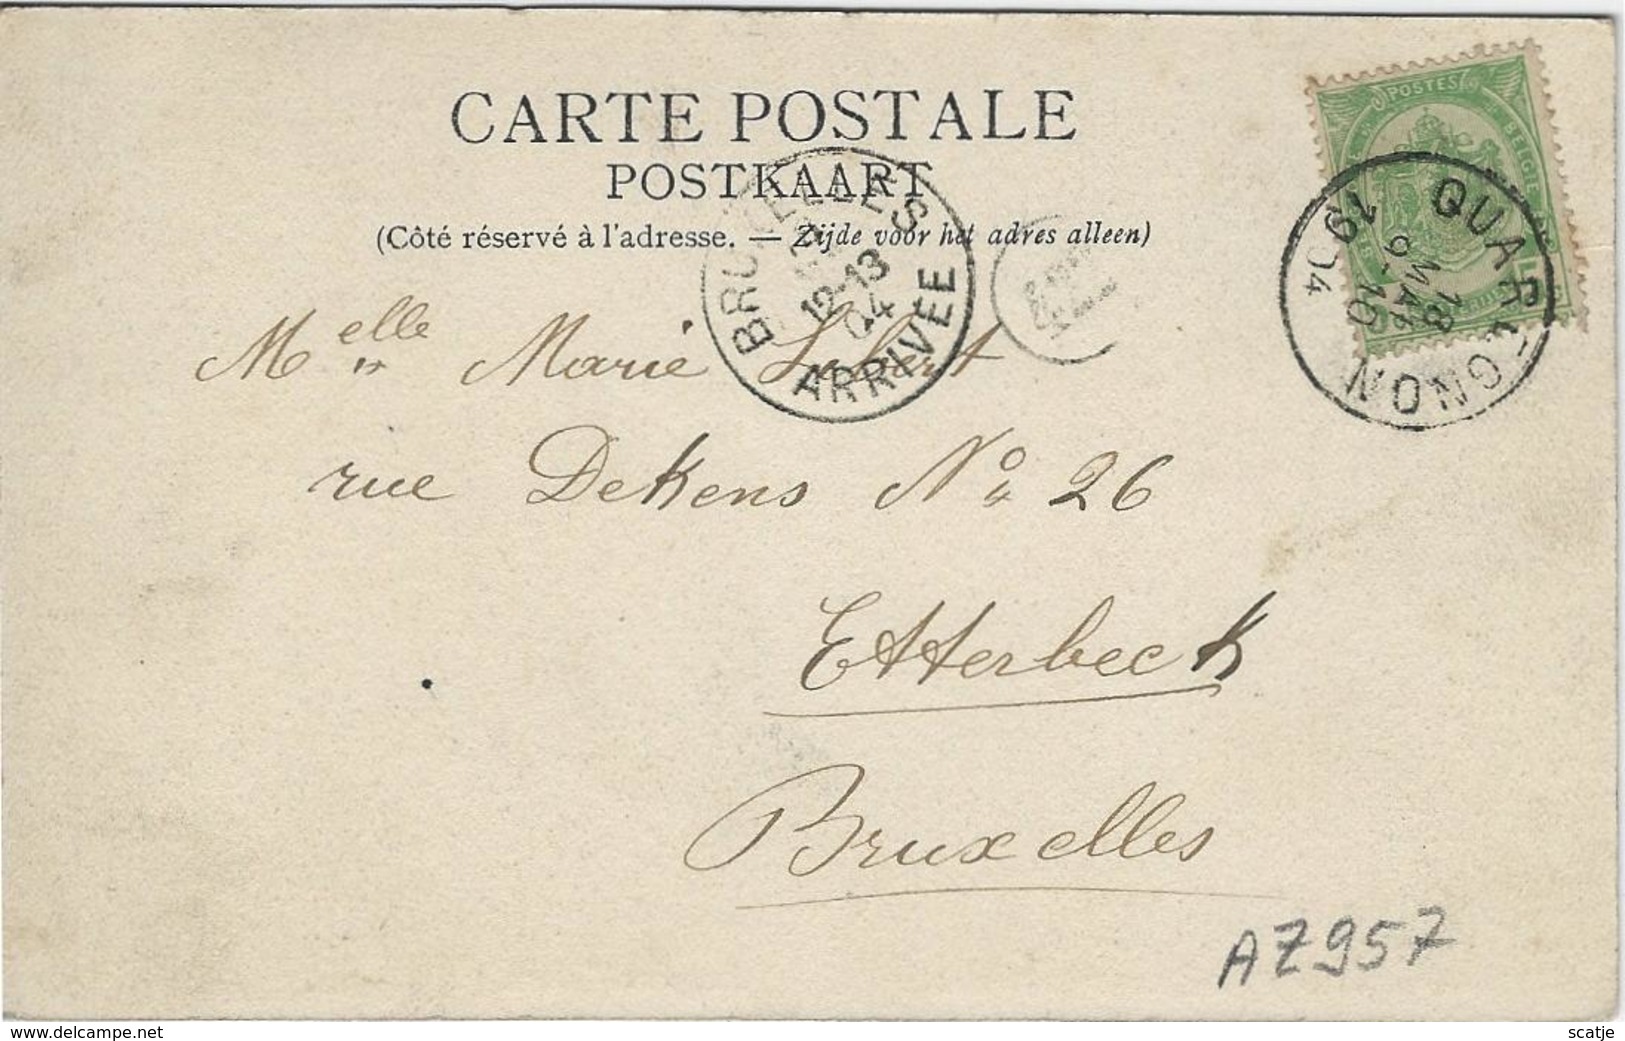 CARTE POSTALE
POSTKAART
(Côté réservé à l'adresse. — Zijde voor het adres alleen)
POSTES
BELGIE
QUAREGNON
18
9-10
1904
BRUXELLES
12-13
04
ARRIVÉE
Melle Marie
rue Dekens No 26
Etterbeck
Bruxelles
AZ957
www.delcampe.net
scatje